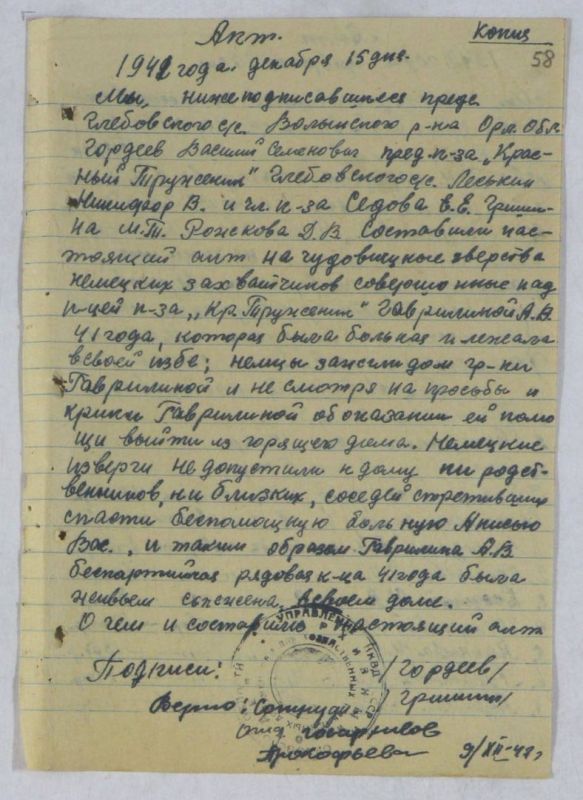 Копия
58
Акт.
1941 года. декабря 15 дня.
Мы, нижеподписавшиеся пред.
Глебовского с/с. Волынского р-на Орл. Обл.
Гордеев Василий Семенович пред. к-за „Крас-
ный Труженик" Глебовского с/с. Леськин
Никифор В. и чл. к-за Седова Е.Е. Гриши-
на М.Т. Рожскова Д.В. Составили нас-
тоящий акт на чудовищные зверства
немецких захватчиков совершонные над
к-цей к-за „Кр. Труженик" Гаврилиной А.В.
41 года, которая была больная и лежала
в своей избе; немцы зажгли дом гр-ки
Гаврилиной и не смотря на просьбы и
крики Гаврилиной об оказании ей помо
щи выйти из горящего дома. Немецкие
изверги не допустили к дому ни родст-
венников, ни близких, соседей
спасти беспомощную больную Анисью
Вас., и таким образом Гаврилина А.В.
беспартийная рядовая к-ца 41 года была
живьем сожжена в своем доме.
О чем и составили настоящий акт
Подписи: /Гордеев/
/Гришина/
Верно: Сотрудн
отд госархивов
Прокофьева 9/XII-42 г
УПРАВЛЕНИЕ НКВД